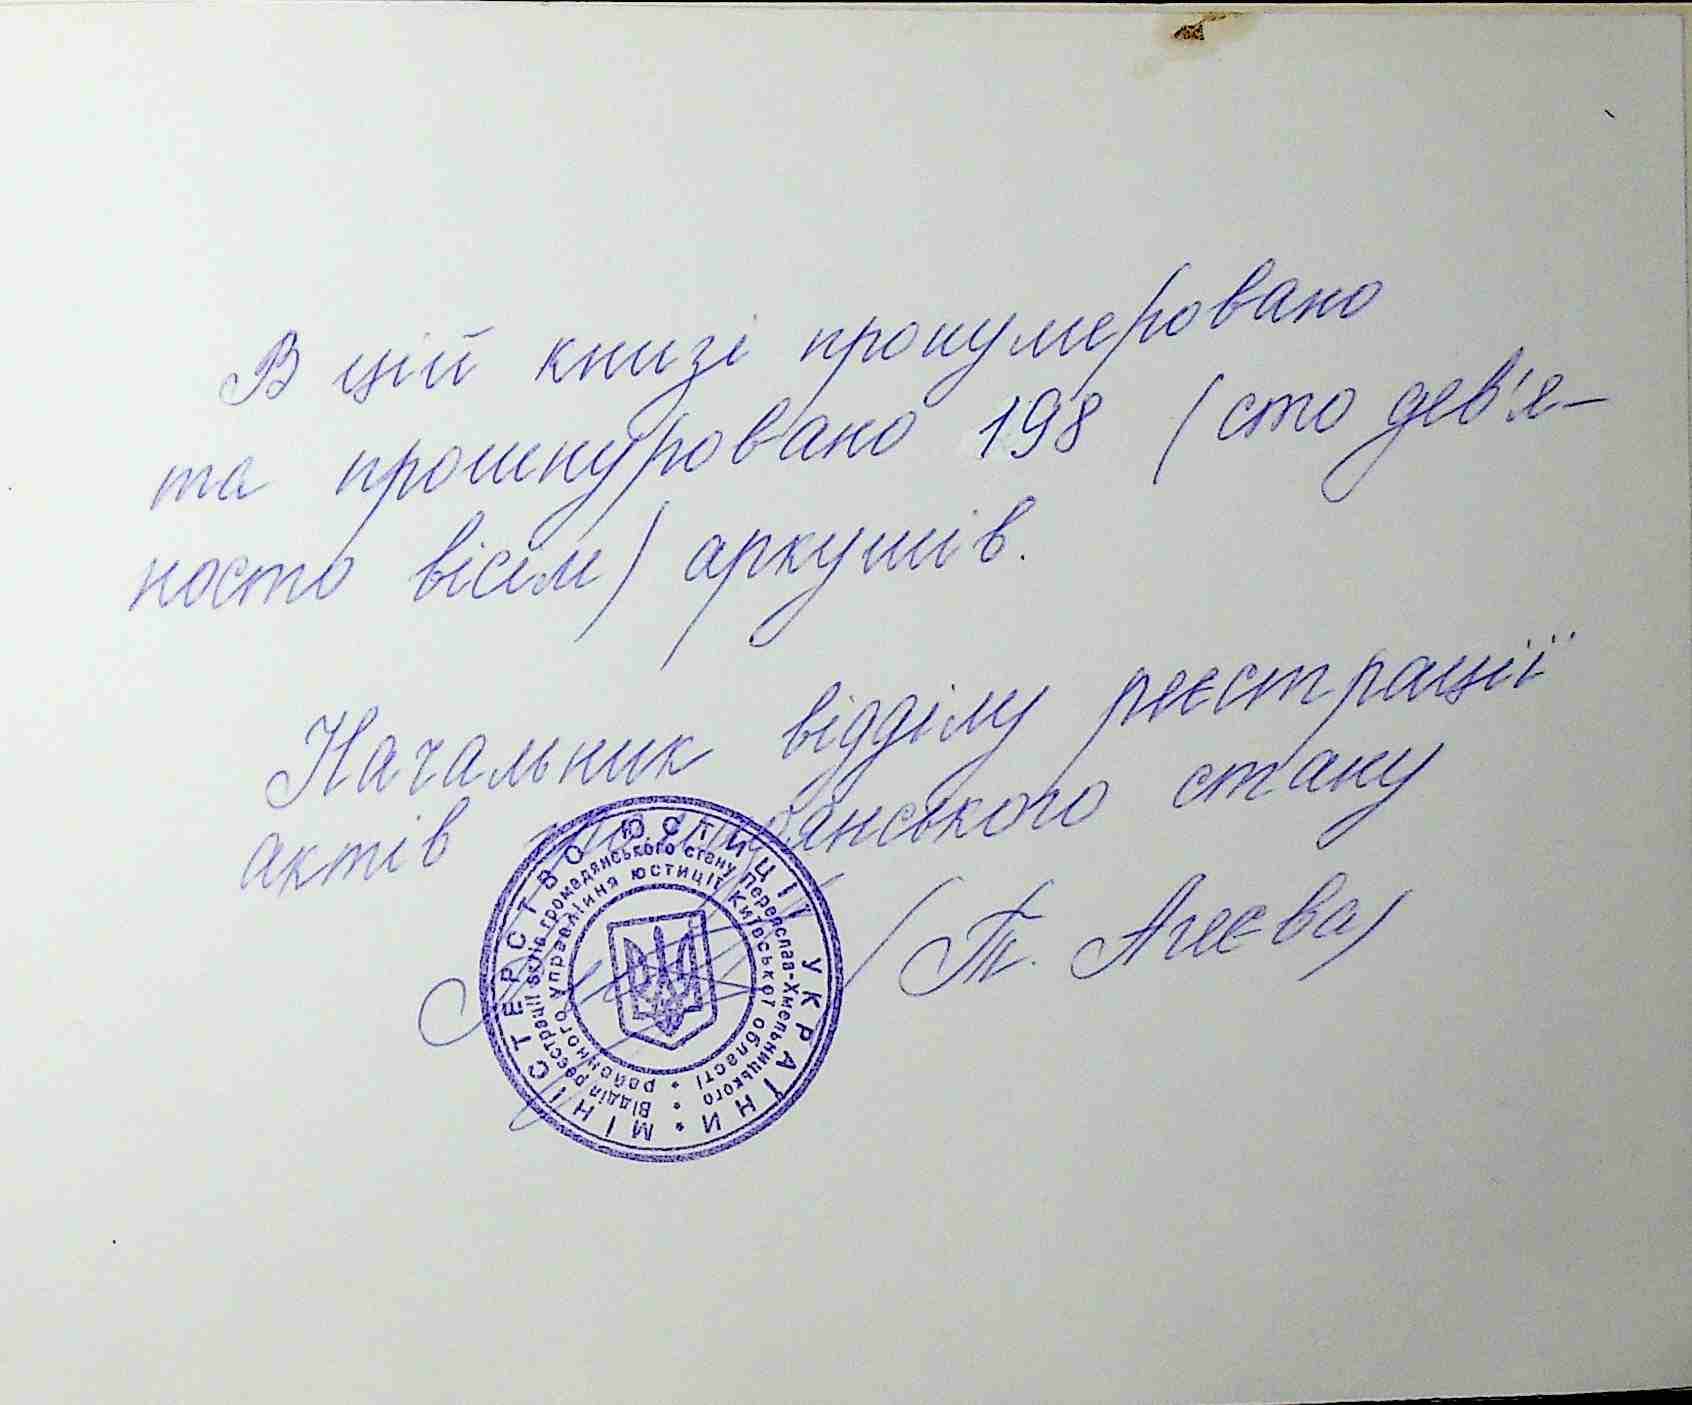 В цій книзі пронумеровано
та прошнуровано 198 (сто дев'я-
носто вісім) аркушів.
Начальник відділу реєстрації
актів громадянського стану
(Т. Агеєва)
МІНІСТЕРСТВО ЮСТИЦІЇ УКРАЇНИ
Відділ реєстрації актів громадянського стану Переяслав-Хмельницького
районного управління юстиції Київської області